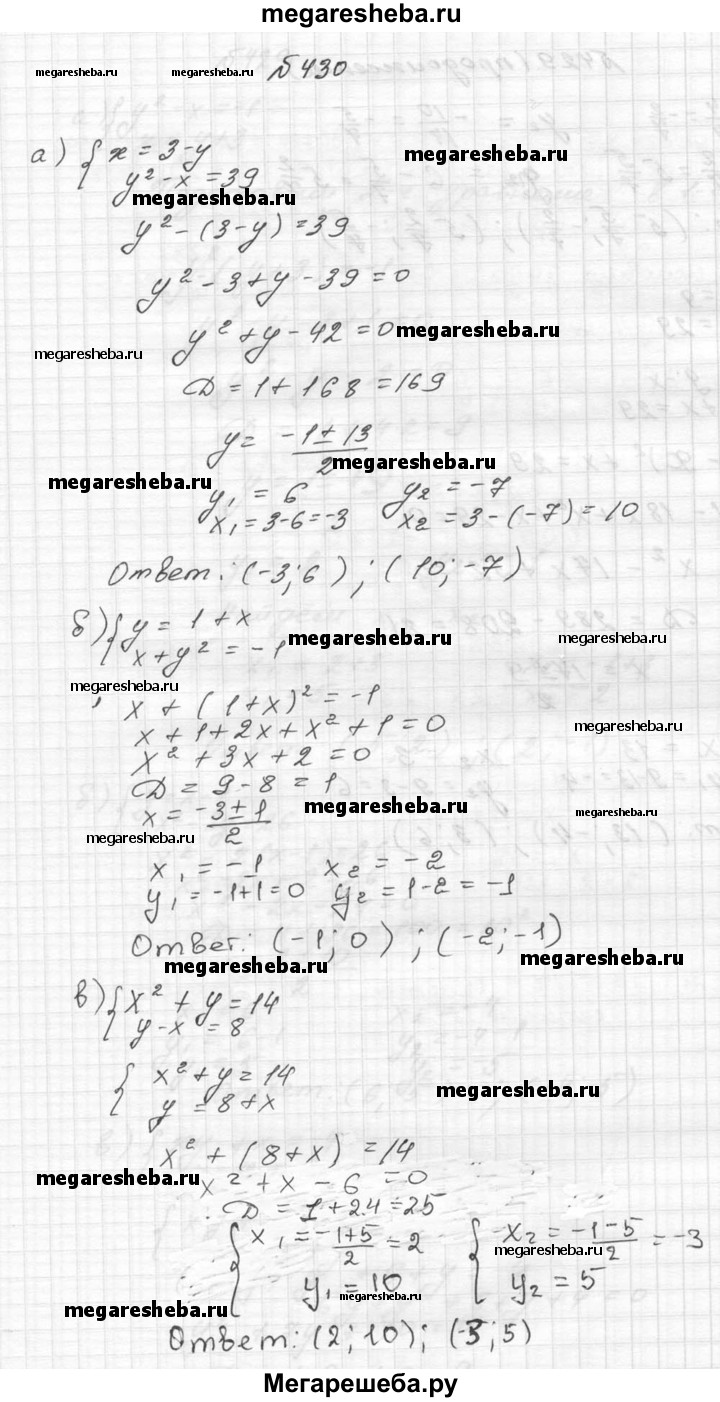 megaresheba.ru
megaresheba.ru megaresheba.ru №430
а) { x = 3-y megaresheba.ru
y² - x = 39
megaresheba.ru
y² - (3-y) = 39
y² - 3 + y - 39 = 0
y² + y - 42 = 0 megaresheba.ru
megaresheba.ru
D = 1 + 168 = 169
y = (-1 ± 13)/2
megaresheba.ru megaresheba.ru
y₁ = 6 y₂ = -7
x₁ = 3-6 = -3 x₂ = 3-(-7) = 10
Ответ: (-3; 6); (10; -7)
б) { y = 1 + x
megaresheba.ru megaresheba.ru
x + y² = -1
megaresheba.ru
x + (1+x)² = -1
x + 1 + 2x + x² + 1 = 0 megaresheba.ru
x² + 3x + 2 = 0
D = 9 - 8 = 1
x = (-3 ± 1)/2 megaresheba.ru megaresheba.ru
megaresheba.ru
x₁ = -1 x₂ = -2
y₁ = -1+1 = 0 y₂ = 1-2 = -1
Ответ: (-1; 0); (-2; -1)
megaresheba.ru megaresheba.ru
в) { x² + y = 14
y - x = 8
{ x² + y = 14
megaresheba.ru
y = 8 + x
x² + (8+x) = 14
megaresheba.ru
x² + x - 6 = 0
D = 1 + 24 = 25
{ x₁ = (-1+5)/2 = 2 { x₂ = (-1-5)/2 = -3
megaresheba.ru
y₁ = 10 y₂ = 5
megaresheba.ru
megaresheba.ru
Ответ: (2; 10); (-3; 5)
Мегарешеба.ру